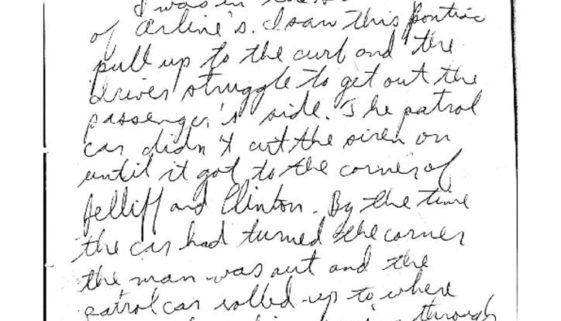 I was in
of Arline's. I saw this pontiac
pull up to the curb and the
driver struggle to get out the
passenger's side. The patrol
car didn't cut the siren on
until it got to the corner of
Jelliff and Clinton. By the time
the car had turned the corner
the man was out and the
patrol car rolled up to where
through